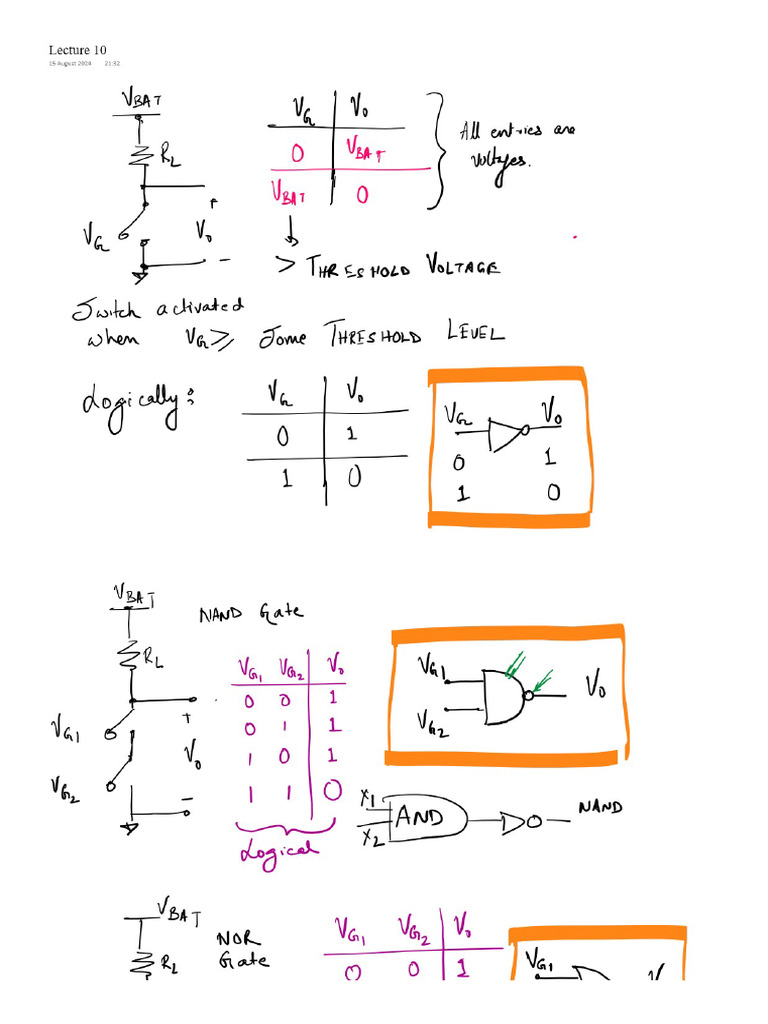 Lecture 10
15 August 2024 21:32
VBAT
RL
VG
+
Vo
−
VG Vo
0 VBAT
VBAT 0
All entries are
voltages.
> THRESHOLD VOLTAGE
Switch activated
when VG ≥ Some THRESHOLD LEVEL
Logically:
VG Vo
0 1
1 0
VG Vo
0 1
1 0
VBAT
NAND Gate
RL
VG1
+
Vo
VG2
−
VG1 VG2 Vo
0 0 1
0 1 1
1 0 1
1 1 0
Logical
VG1
Vo
VG2
X1
AND
X2
NAND
VBAT
RL
NOR
Gate
VG1 VG2 Vo
0 0 1
VG1